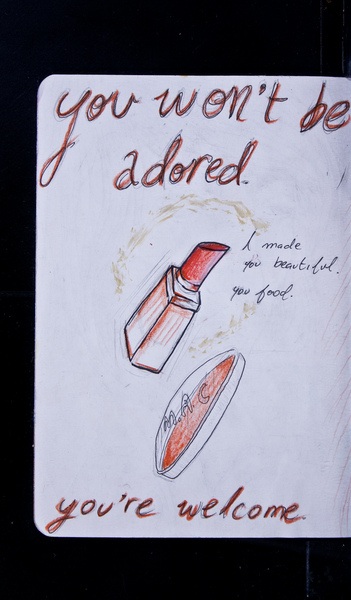 you won't be
adored.
I made
you beautiful.
you food.
M.A.C
you're welcome.